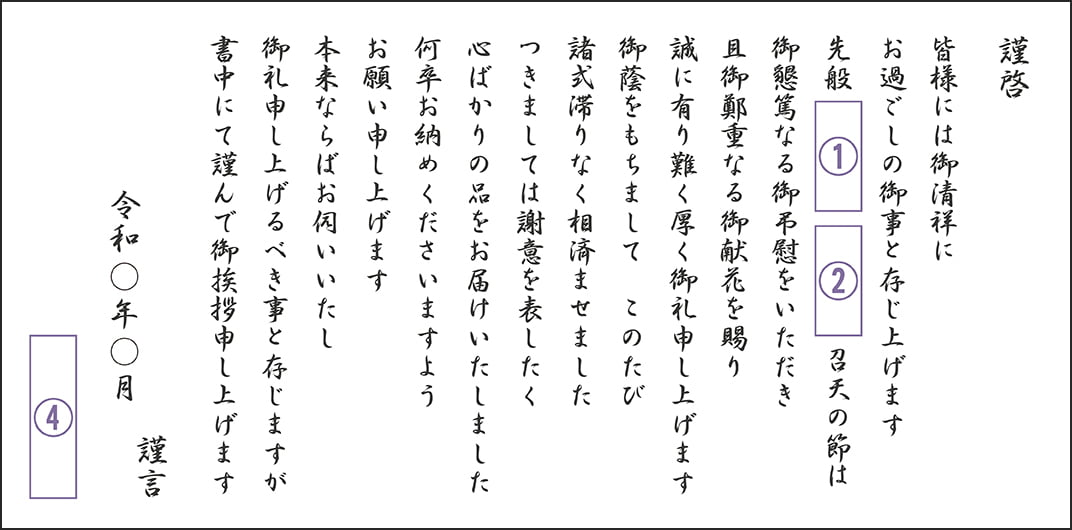 謹啓
皆様には御清祥に
お過ごしの御事と存じ上げます
先般 ① ② 召天の節は
御懇篤なる御弔慰をいただき
且御鄭重なる御献花を賜り
誠に有り難く厚く御礼申し上げます
御蔭をもちまして このたび
諸式滞りなく相済ませました
つきましては謝意を表したく
心ばかりの品をお届けいたしました
何卒お納めくださいますよう
お願い申し上げます
本来ならばお伺いいたし
御礼申し上げるべき事と存じますが
書中にて謹んで御挨拶申し上げます
謹言
令和〇年〇月
④